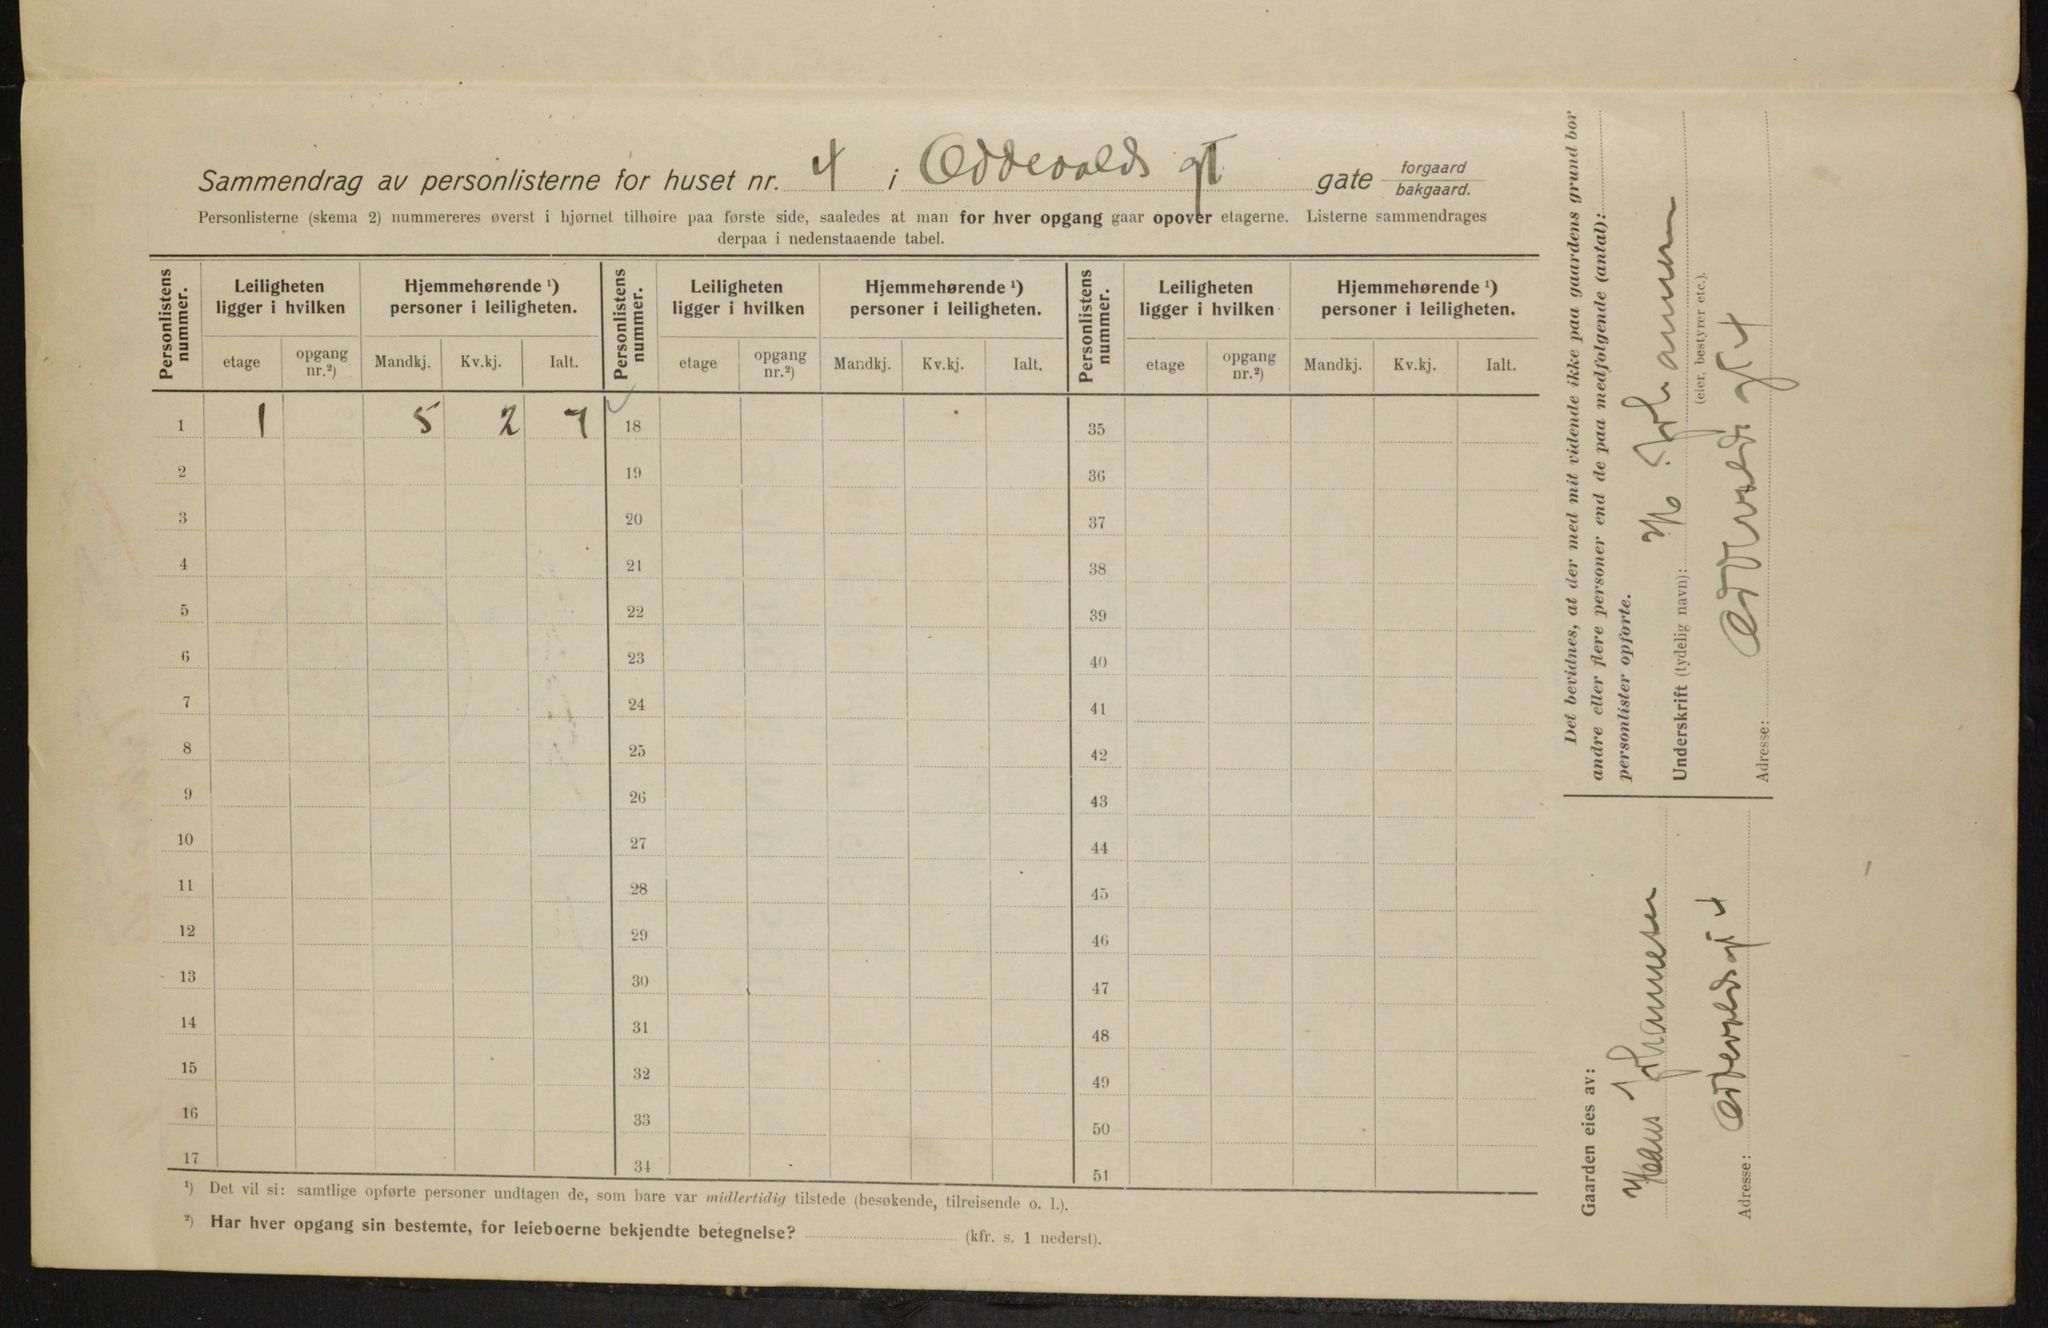 Sammendrag av personlisterne for huset nr. 4 i Oddevalds gt gate forgaard bakgaard.
Personlisterne (skema 2) nummereres øverst i hjørnet tilhøire paa første side, saaledes at man for hver opgang gaar opover etagerne. Listerne sammendrages
derpaa i nedenstaaende tabel.
Personlistens nummer. Leiligheten ligger i hvilken Hjemmehørende ¹) personer i leiligheten. Personlistens nummer. Leiligheten ligger i hvilken Hjemmehørende ¹) personer i leiligheten. Personlistens nummer. Leiligheten ligger i hvilken Hjemmehørende ¹) personer i leiligheten.
etage opgang nr.²) Mandkj. Kv.kj. Ialt. etage opgang nr.²) Mandkj. Kv.kj. Ialt. etage opgang nr.²) Mandkj. Kv.kj. Ialt.
1 1 5 2 7 18 35
2 19 36
3 20 37
4 21 38
5 22 39
6 23 40
7 24 41
8 25 42
9 26 43
10 27 44
11 28 45
12 29 46
13 30 47
14 31 48
15 32 49
16 33 50
17 34 51
¹) Det vil si: samtlige opførte personer undtagen de, som bare var midlertidig tilstede (besøkende, tilreisende o. l.).
²) Har hver opgang sin bestemte, for leieboerne bekjendte betegnelse? (kfr. s. 1 nederst).
Det bevidnes, at der med mit vidende ikke paa gaardens grund bor
andre eller flere personer end de paa medfølgende (antal):
personlister opførte.
Underskrift (tydelig navn): H Johannesen
(eier, bestyrer etc.).
Adresse: Oddevalds gt 4
Gaarden eies av:
Hans Johannesen
Adresse: Oddevaldsgt 4